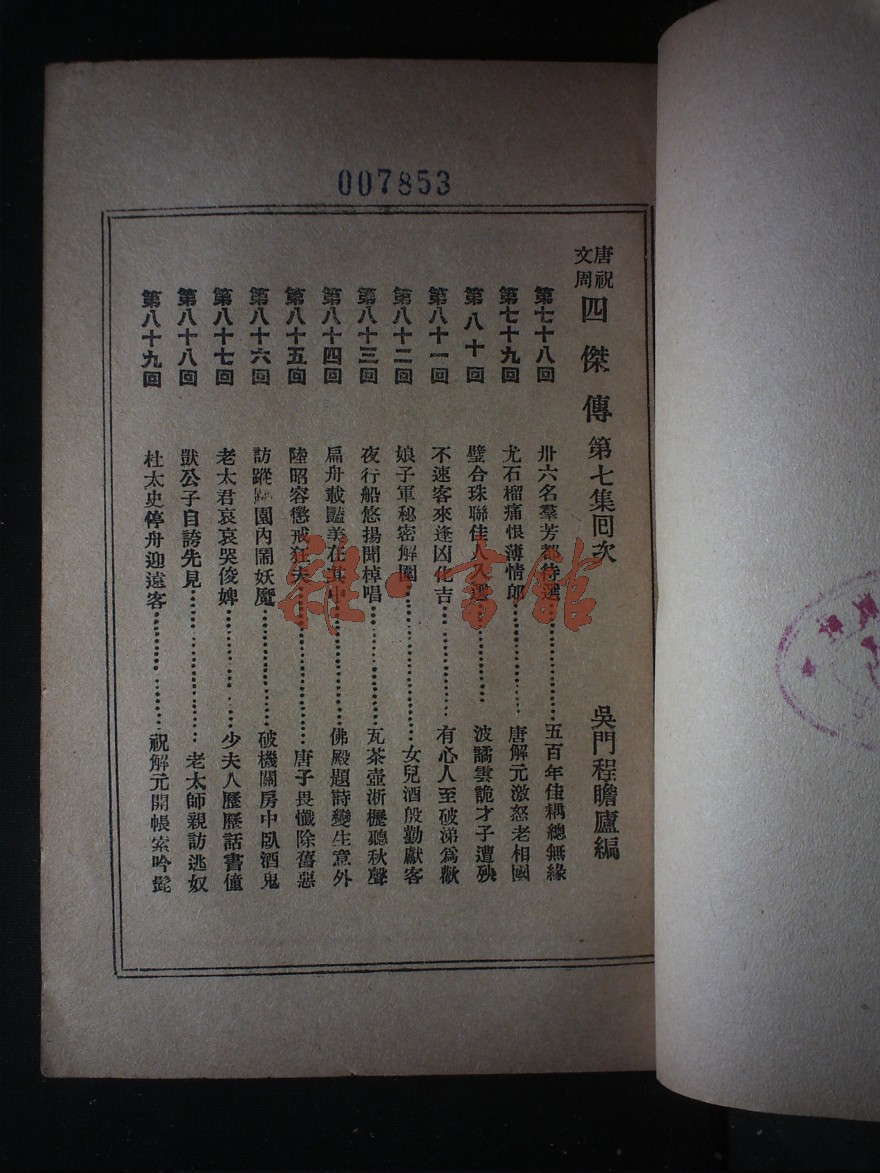 007853
唐祝文周四傑傳第七集囘次 吳門程瞻廬編
第七十八回 卅六名羣芳都待選……五百年佳耦總無緣
第七十九回 尤石榴痛恨薄情郎……唐解元激怒老相國
第八十回 璧合珠聯佳人入選……波譎雲詭才子遭殃
第八十一回 不速客來逢凶化吉……有心人至破涕爲歡
第八十二回 娘子軍秘密解圍……女兒酒殷勤獻客
第八十三回 夜行船悠揚聞棹唱……瓦茶壺淅瀝聽秋聲
第八十四回 扁舟載豔美在其中……佛殿題詩變生意外
第八十五回 陸昭容懲戒狂夫……唐子畏懺除舊惡
第八十六回 訪蹤跡園內鬧妖魔……破機關房中臥酒鬼
第八十七回 老太君哀哀哭俊婢……少夫人歷歷話書僮
第八十八回 獃公子自誇先見……老太師親訪逃奴
第八十九回 杜太史停舟迎遠客……祝解元開帳索吟髭
雜·書館